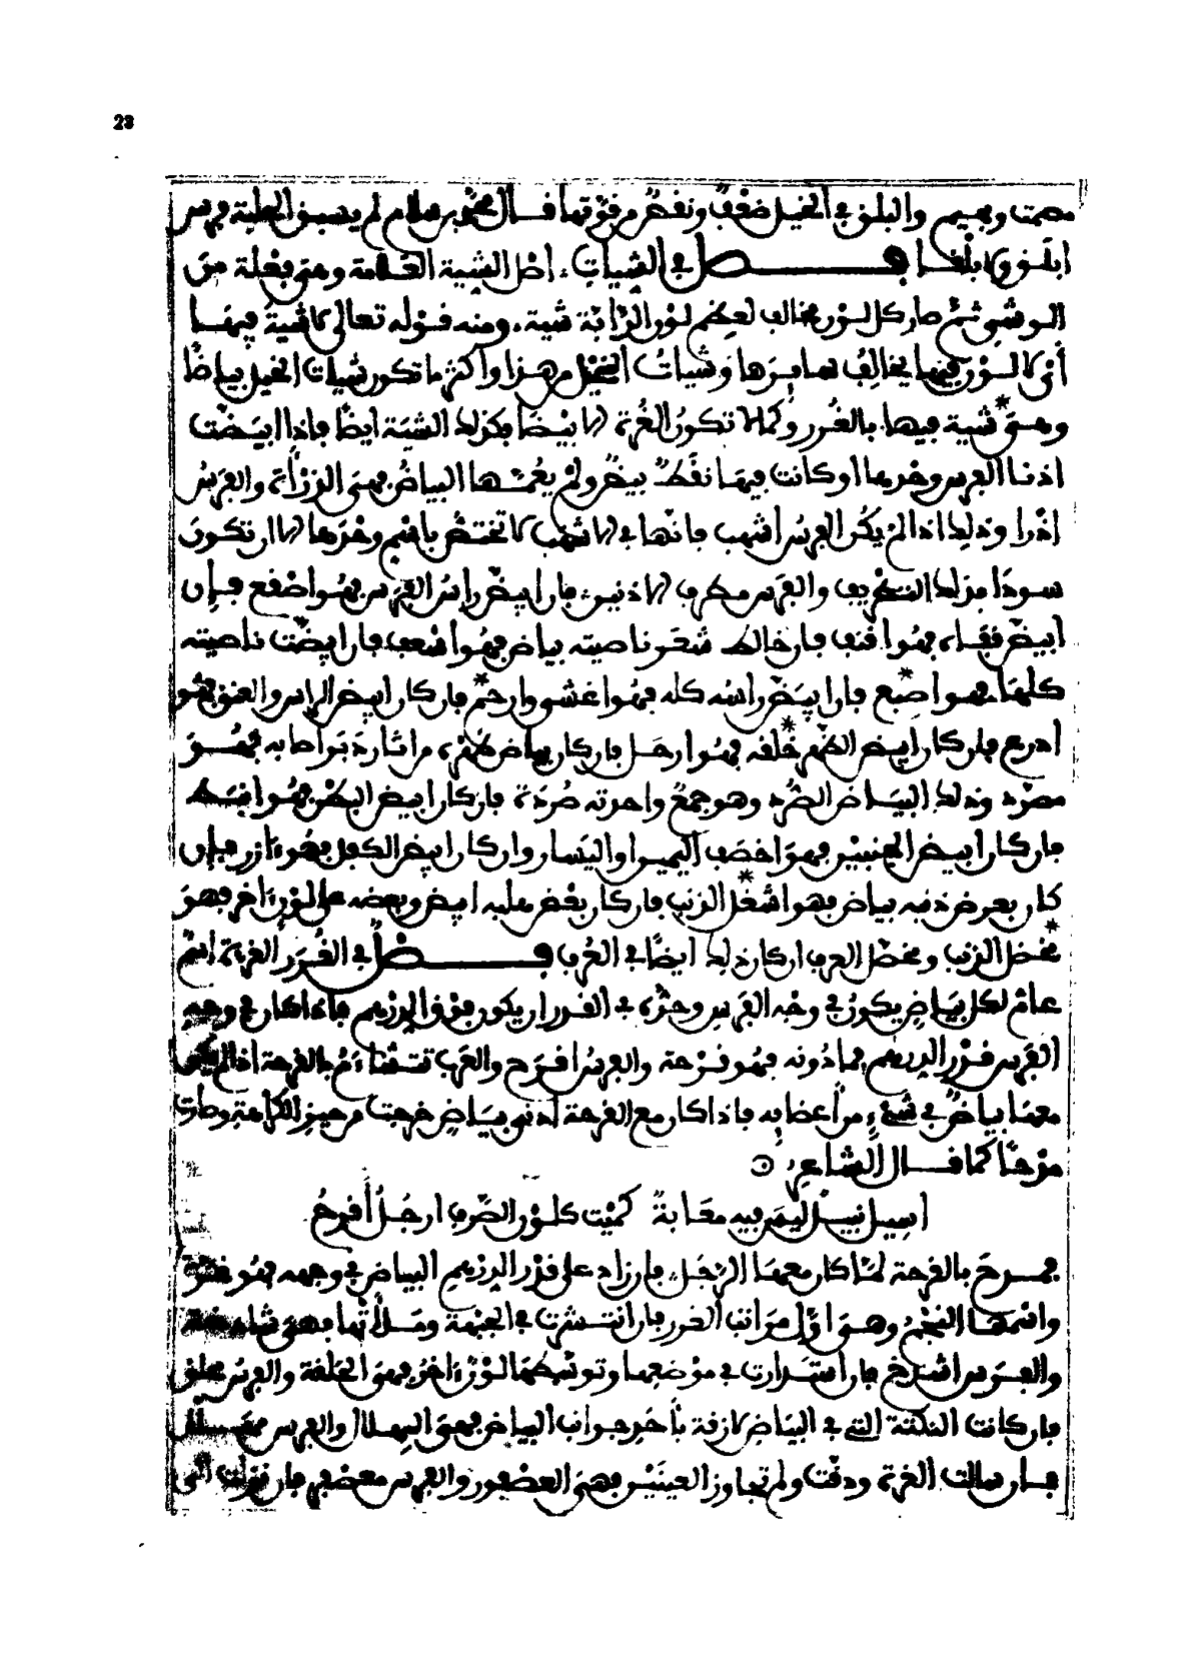 23
مصمت وبهيم والبلق في الخيل ضعف ونقص من قوتها فـال محمد بن سلام لم يسبق الحلبة فرس
ابلق ولا بلقا فصل في الشيات، اصل الشية العلامة وهي فعلة من
الوشي ثم صار كل لون مخالف لمعظم لون الدابة شية، ومنه قوله تعالى لا شية فيها
أي لا لون فيها يخالف لسايرها وشيات الخيل من هذا وأكثر ما تكون شيات الخيل بياضًا
وهي شية فيها بالغرر وكما لا تكون الغرة الا بيضا فكذلك الشية ايضًا فاذا ابيضت
اذنا الفرس وحدهما او كانت فيها نقط بيض ولم يعمها البياض فهي الذرأة والفرس
اذرا وذلك اذا لم يكن الفرس اشهب فانها في الاشهب لا تختص باسم وحدها الا ان تكون
سودا فذلك التطريف والفرس مطرف الاذنين، فان ابيض راس الفرس فهو اصقع فـإن
ابيض قفاه فهو اقنف فان خالط شعر ناصيته بياض فهو اسعف فان ابيضت ناصيته
كلها فهو اصبغ فان ابيض رأسه كله فهو اغشى وارخم فان كان ابيض الراس والعنق فهو
ادرع فان كان ابيض الظهر خلقه فهو ارحل فان كان بياض ظهره من اثار دبر اصابه فهو
مصرد وذلك البياض الصرد وهو جمع واحدته صردة فان كان ابيض البطن فهو انبط
فان كان ابيض الجنبين فهو اخصف اليمين او اليسار وان كان ابيض الكفل فهو ءازر فـإن
كان بعرض ذنبه بياض فهو اشعل الذنب فان كان بعض هلبه ابيض وبعضه على لون ءاخر فهو
مخصل الذنب ومخصل العرف ان كان ذلك ايضًا في العرف فصل في الغرر الغرة اسم
عام لكل بياض يكون في وجه الفرس وحده في الغرر ان يكون فوق الدرهم فاذا كان في وجه
الفرس قدر الدرهم فما دونه فهو قرحة والفرس اقرح والعرب تتشاءم بالقرحة اذا لم يكن
معها بياض في شيء من أعضايه فاذا كان مع القرحة ادنى بياض خرجت من حيز الكراهة وصارت
مدحًا كما قـال الشاعر
اسيل نبيل ليس فيه معابة كميت كلون الصرف ارجل أقرح
فمدح بالقرحة لما كان معها الرجل، فان زاد على قدر الدرهم البياض في وجهه فهو غرة
واسمها النجم وهو اول مراتب الغرر فان انتشرت في الجبهة وملأتها فهي شادخة
والفرس اشدخ فان استدارت في موضعها وتوسطها لون ءاخر فهي الحلقة والفرس محلق
فان كانت النكتة التي في البياض لازقة بأحد جوانب البياض فهي الهلال والفرس مهلل
فان سالت الغرة ودقت ولم تجاوز العينين فهي العصفور والفرس معصفر فان نزلت الى